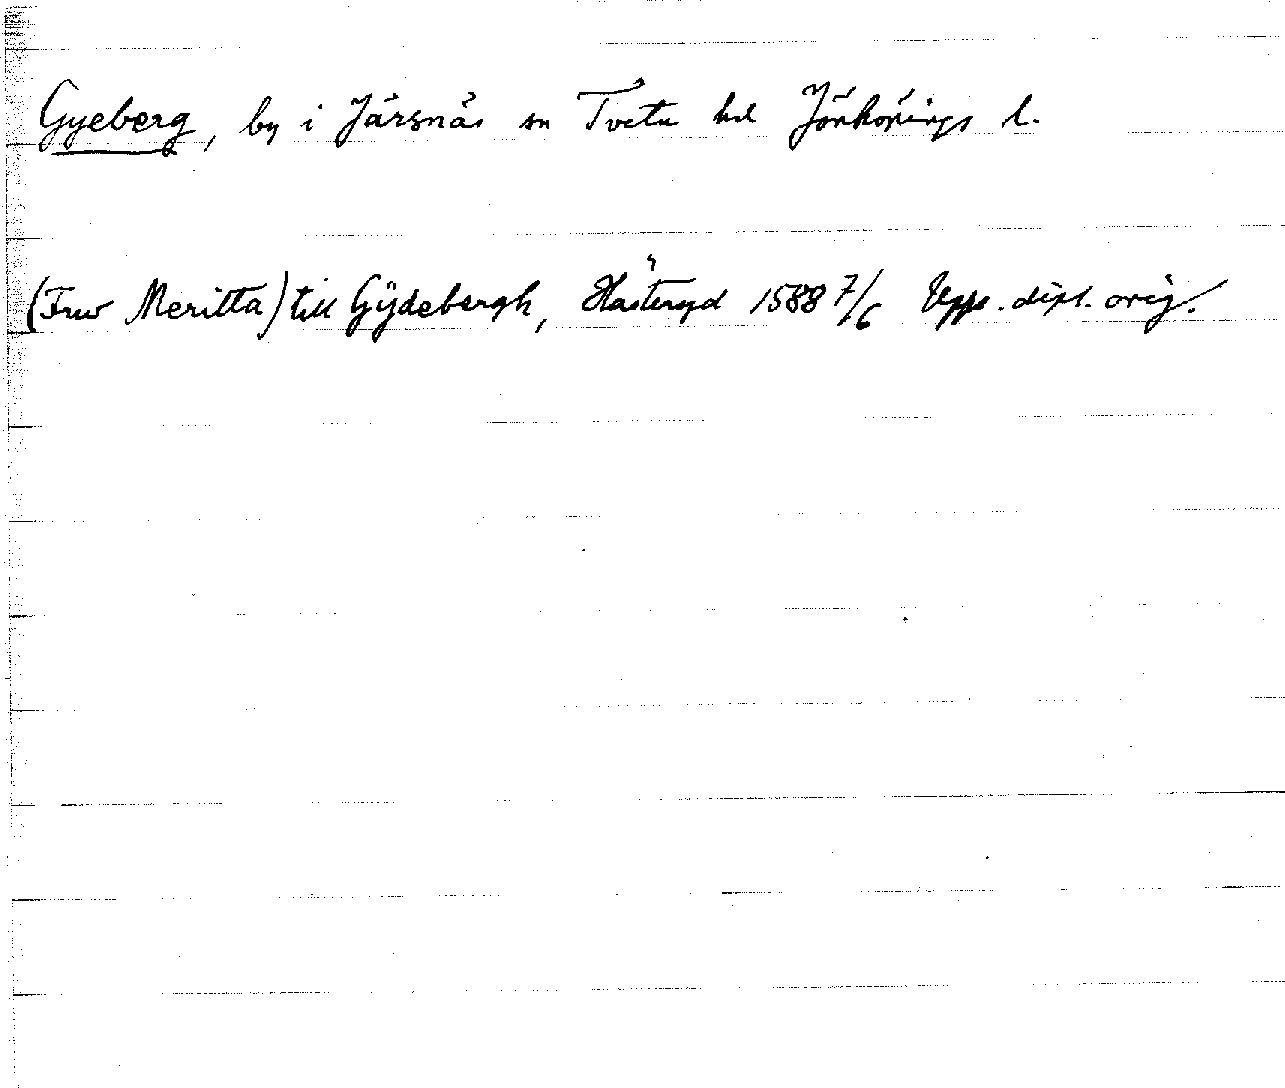 Gyeberg, by i Järsnäs sn Tveta hd Jönköpings l.
(Frw Meritta) till Gÿdebergh, Hästeryd 1588 7/6 Upps. dipl. orig.